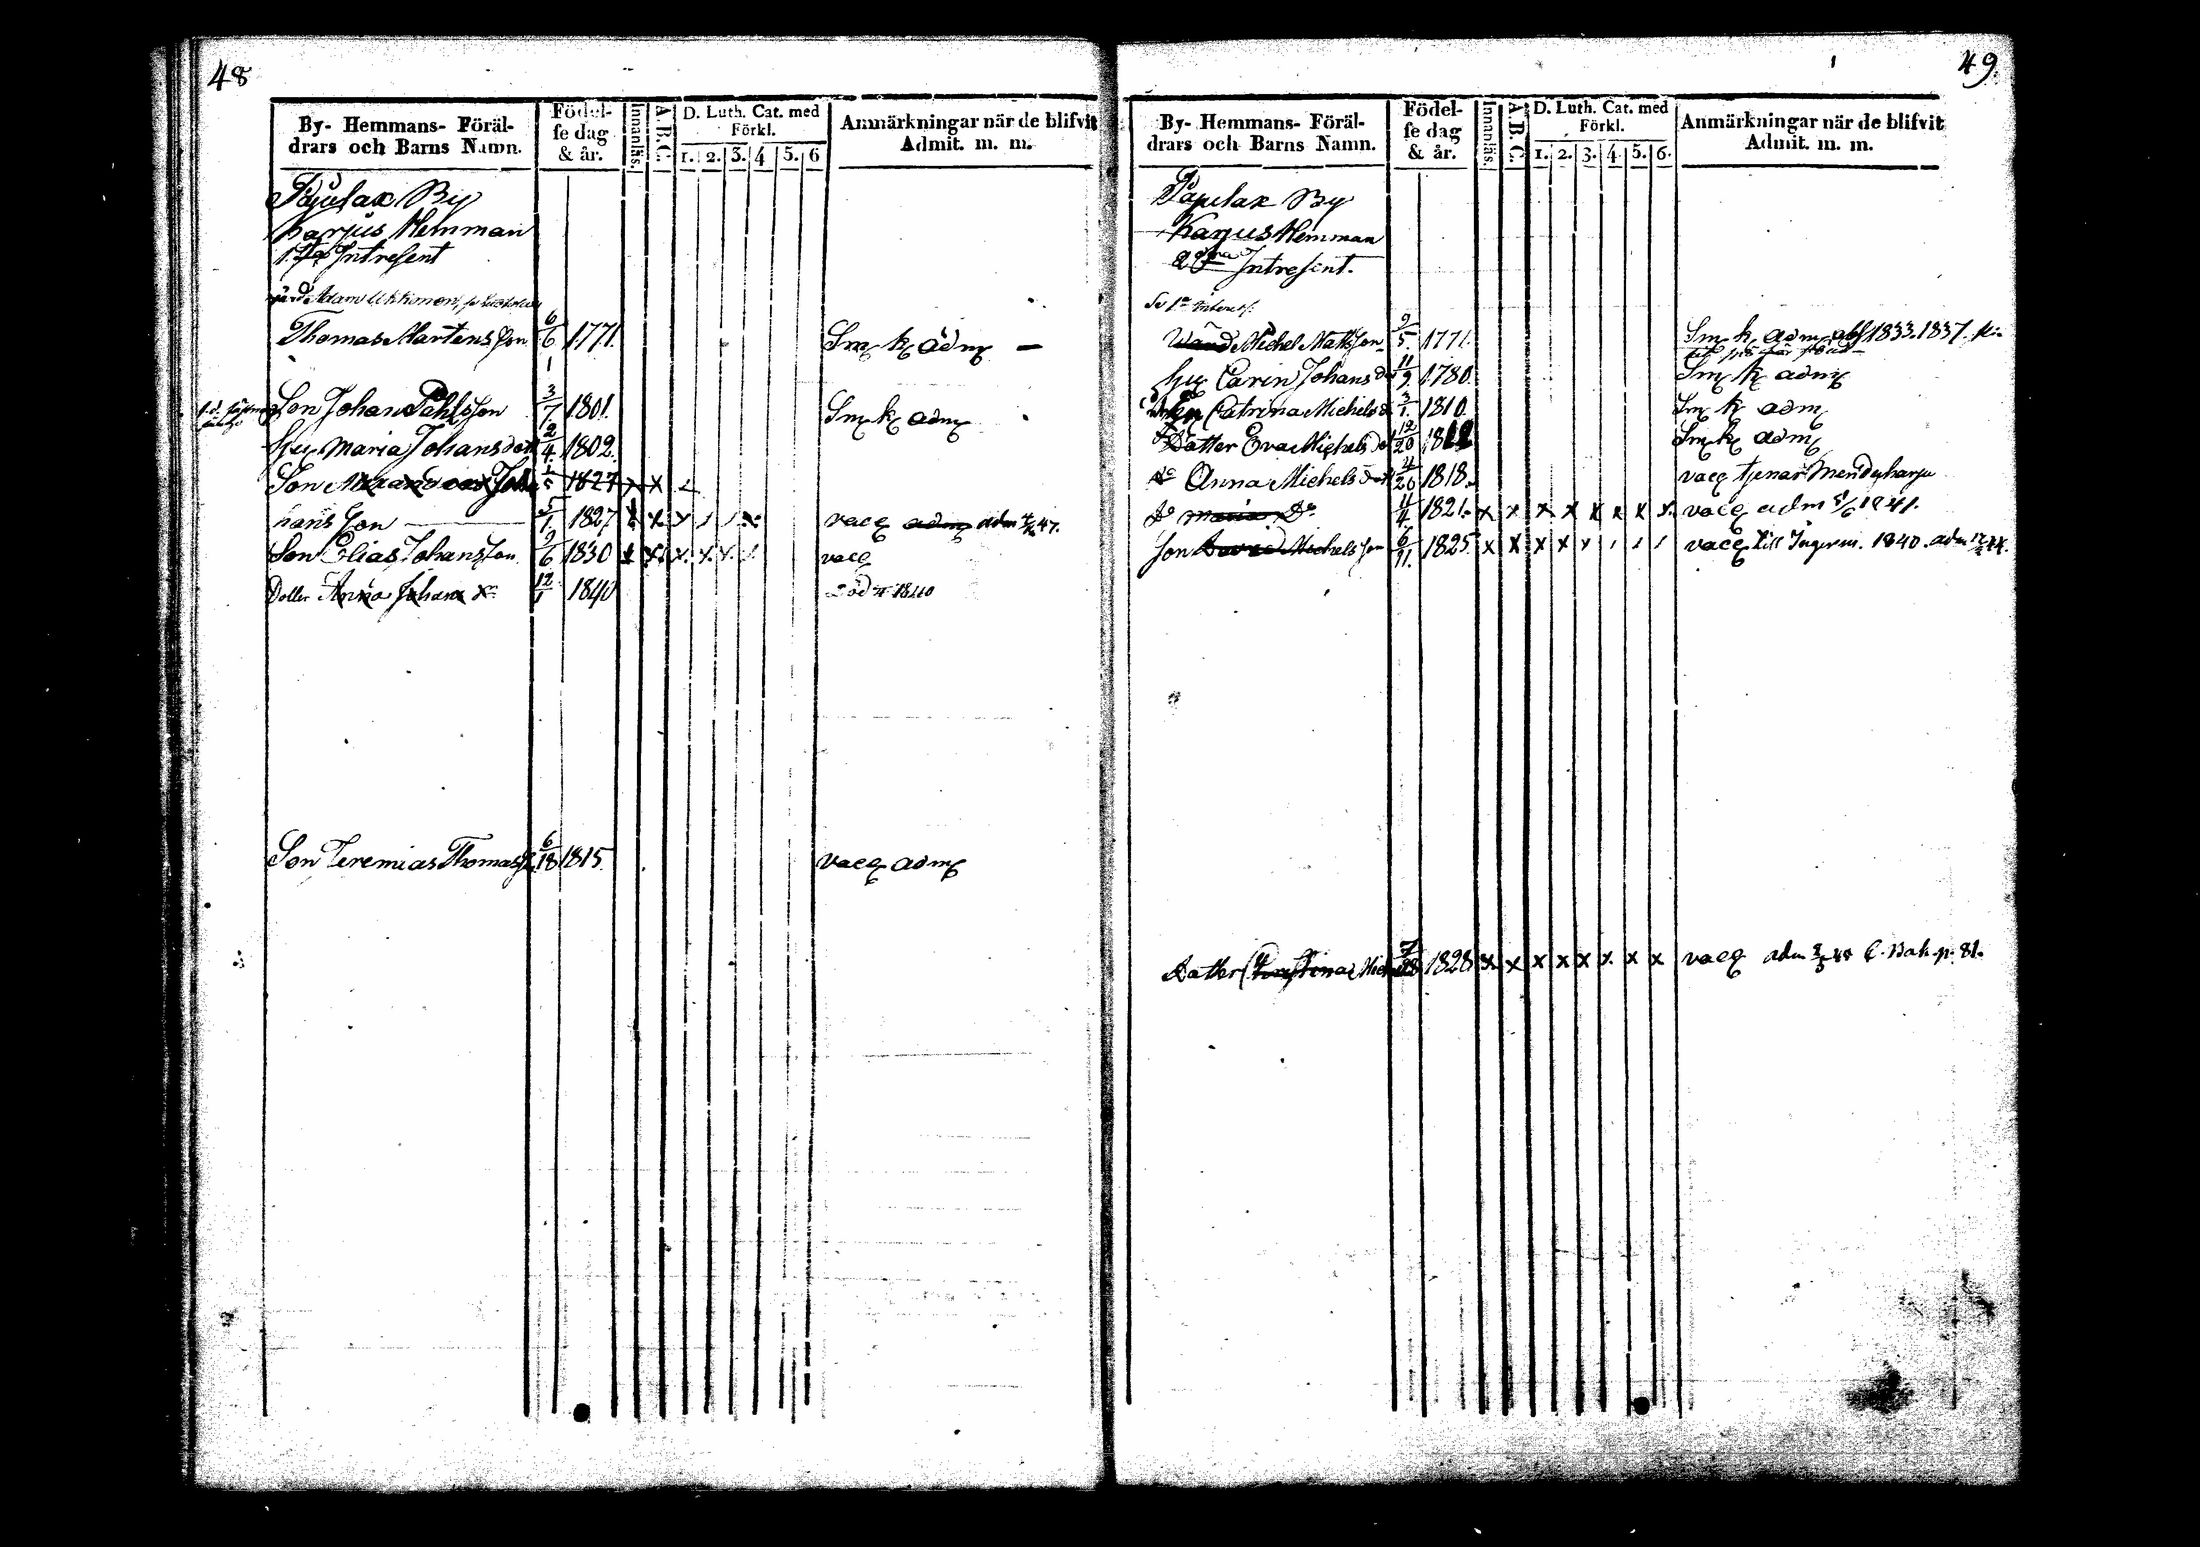 48
By- Hemmans- Föräl-
drars och Barns Namn.
Födel-
se dag
& år.
Innanläs.
A. B. C.
D. Luth. Cat. med
Förkl.
1. 2. 3. 4 5. 6
Anmärkningar när de blifvit
Admit. m. m.
Pajulax By
Karjus Hemman
1sta Intresent
Adam
Thomas Martensson 6/6 1771. Sm k adm
Son Johan Påhlsson 3/7 1801. Sm k adm
Hu Maria Johansdott 2/4 1802.
Son 1827 x x
hans son 5/1. 1827 vacc adm adm 47.
Son Elias Johansson 9/6 1830 vacc
Dotter Anna Johans 12/1 1840 Död 1840
Son Jeremias Thomass 6/18 1815. vacc adm
49.
By- Hemmans- Föräl-
drars och Barns Namn.
Födel-
se dag
& år.
Innanläs.
A. B. C.
D. Luth. Cat. med
Förkl.
1. 2. 3. 4. 5. 6.
Anmärkningar när de blifvit
Admit. m. m.
Pajulax By
Karjus Hemman
2dra Intresent.
Se 1a Intres.
Michel Mattsson 9/5. 1771. Sm k adm 1833. 1837.
Hu Carin Johansd 11/9 1780. Sm k adm
Catrina Michelsd 3/1. 1810. Sm k adm
Datter Eva Michelsd 12/20 Sm k adm
do Anna Michelsdott 4/26 1818. vacc tjenar Mendeharju
Do Maria Do 4/4 1821. x x x x x x x x vacc adm 5/6 1841.
Son Michelsson 6/11. 1825. x x x x x vacc till Ingerm. 1840. adm 44.
Datter Christina Mich 7/28 1828 x x x x x x x x vacc adm 48 C. Bok. p. 81.